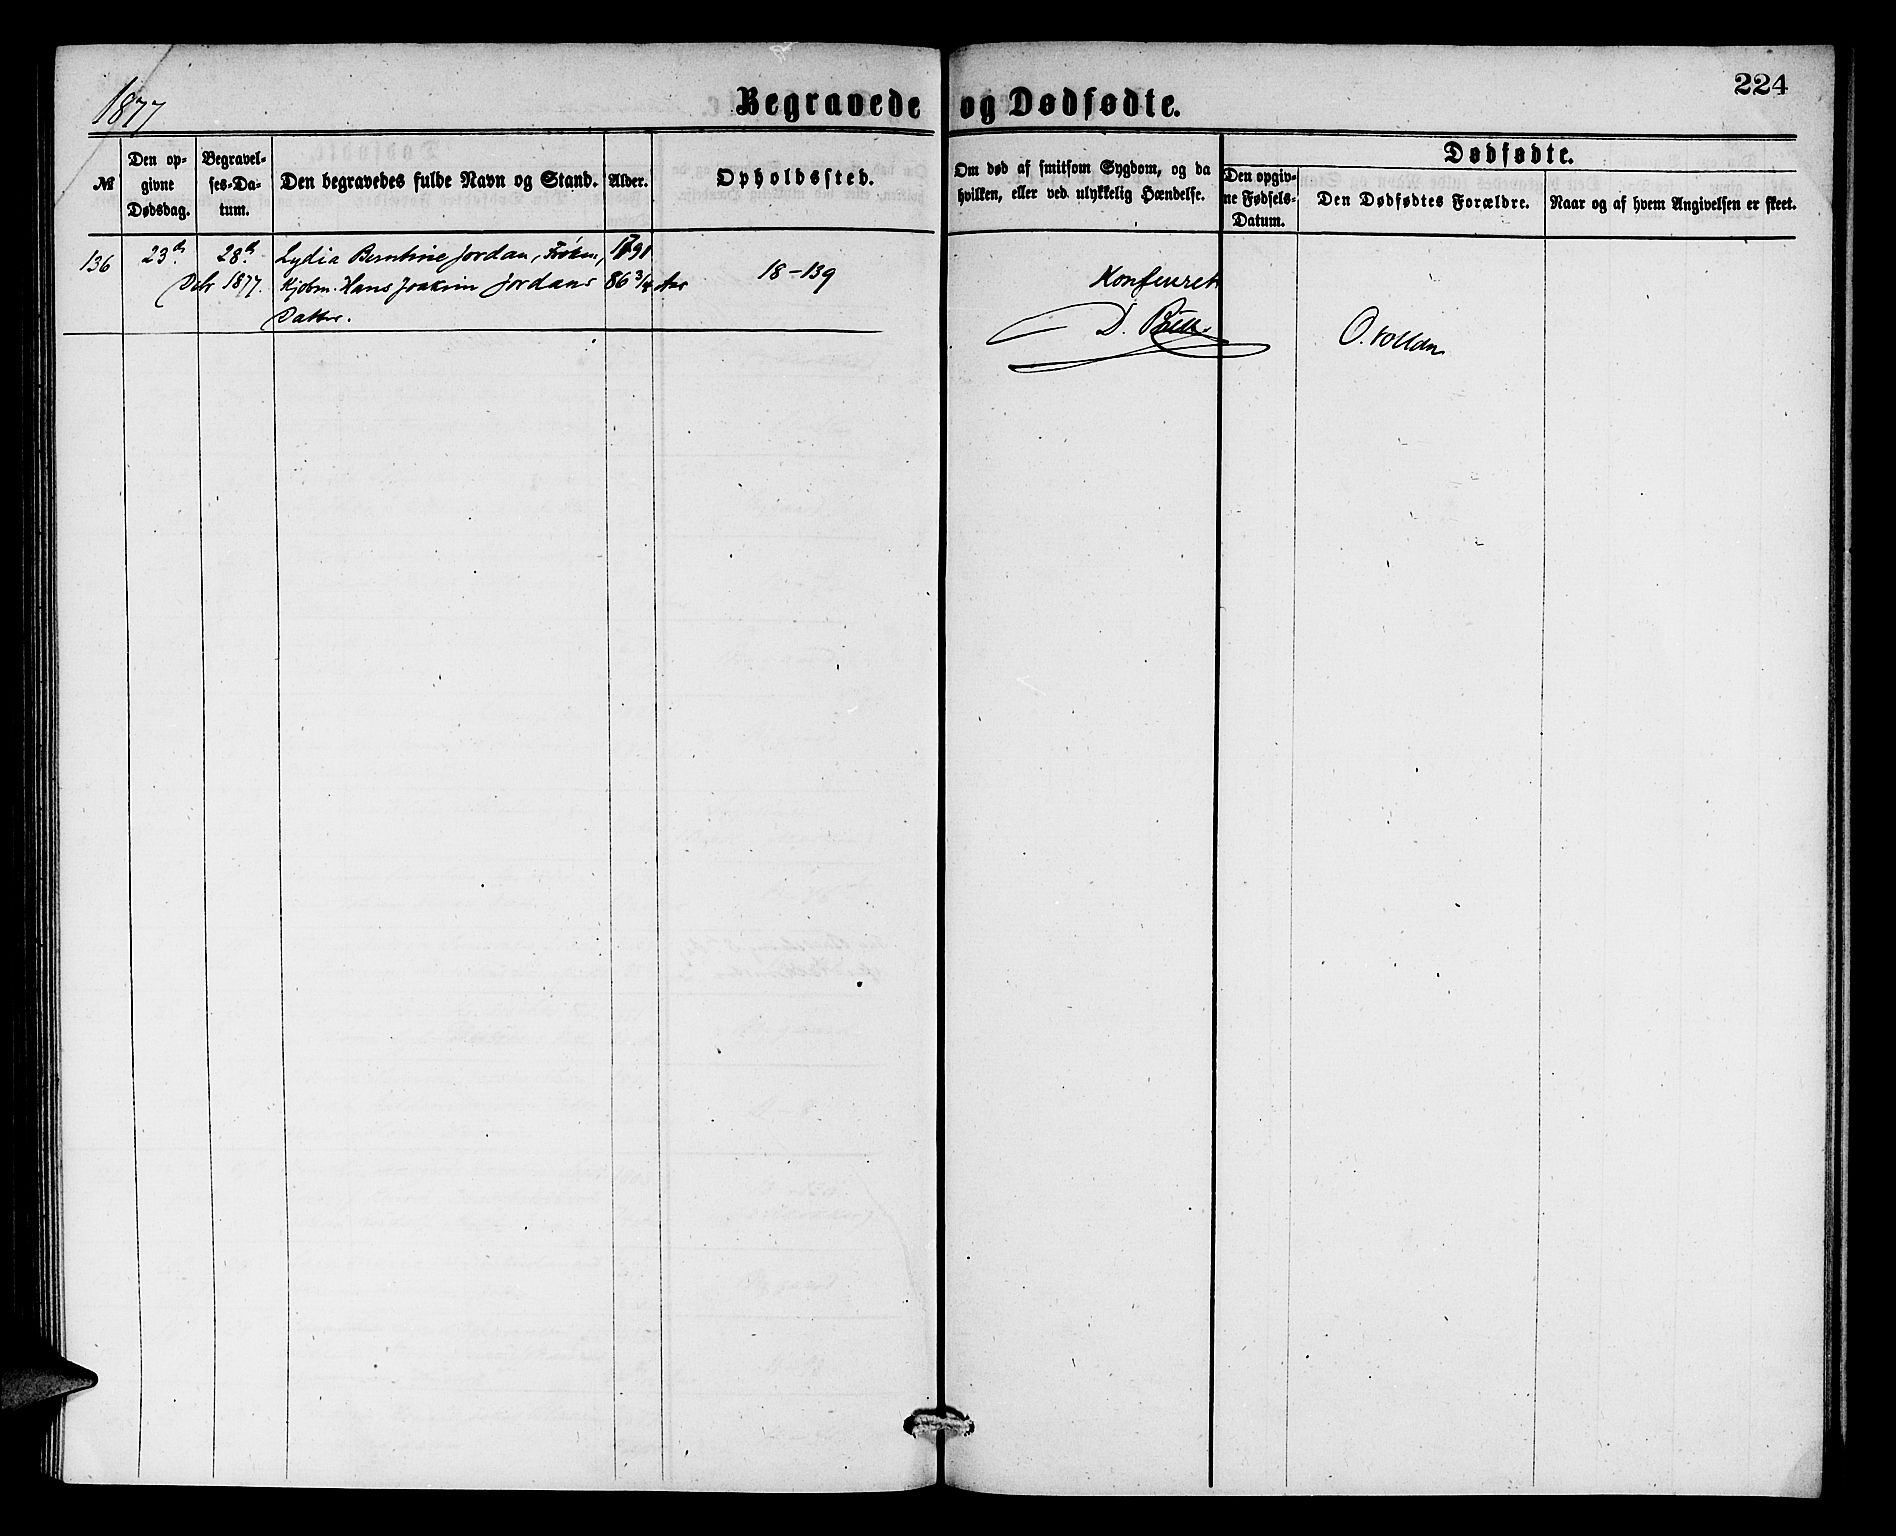 1877
Begravede og Dødfødte.
224
№
Den op-
givne
Dødsdag.
Begravel-
ses-Da-
tum.
Den begravedes fulde Navn og Stand.
Alder.
Opholdssted.
Om død af smitsom Sygdom, og da
hvilken, eller ved ulykkelig Hændelse.
Dødfødte.
Den opgiv-
ne Fødsels-
Datum.
Den Dødfødtes Forældre.
Naar og af hvem Angivelsen er skeet.
136
23de
28de
Lydia Berntine Jordan, Frøken,
1791
Dcbr 1877.
Kjøbm. Hans Joakim Jordans
86 3/4 Aar
18-139
Datter.
Konfereret
D.